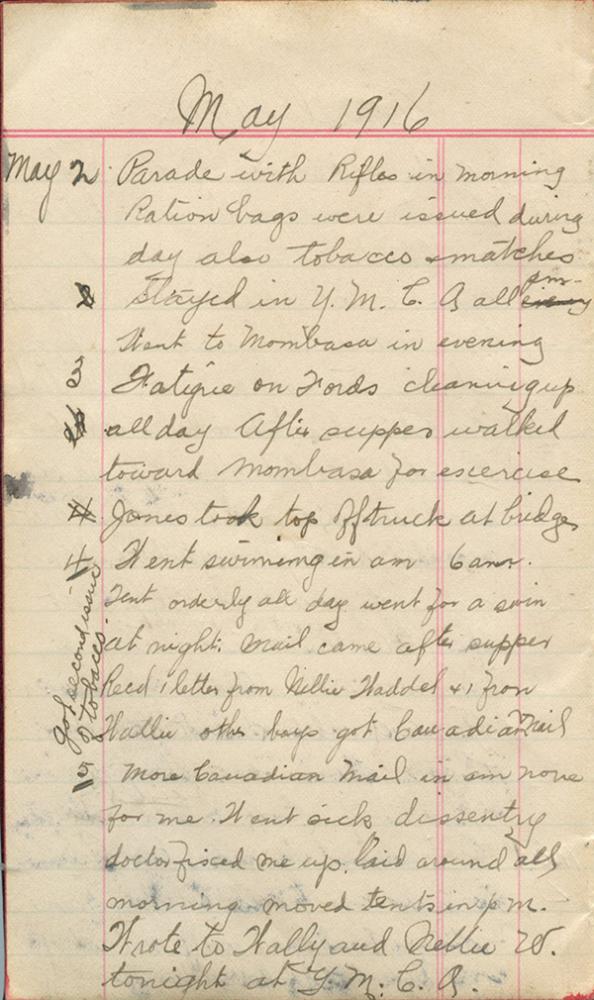 May 1916
May 2 Parade with Rifles in morning
Ration bags were issued during
day also tobacco & matches
Stayed in Y. M. C. A all pm.
Went to Mombasa in evening
3 Fatigue on Fords cleaning up
all day After supper walked
toward Mombasa for exercise
Jones took top off truck at bridge
4 Went swimming in am 6 am.
Tent orderly all day went for a swim
at night. Mail came after supper
Recd 1 letter from Nellie Waddel & 1 from
Wallie other boys got Canadian Mail
got second issue
of tobacco.
5 More Canadian Mail in am none
for me. Went sick dissentry
doctor fixed me up. laid around all
morning moved tents in p m.
Wrote to Wally and Nellie W.
tonight at Y. M. C. A.